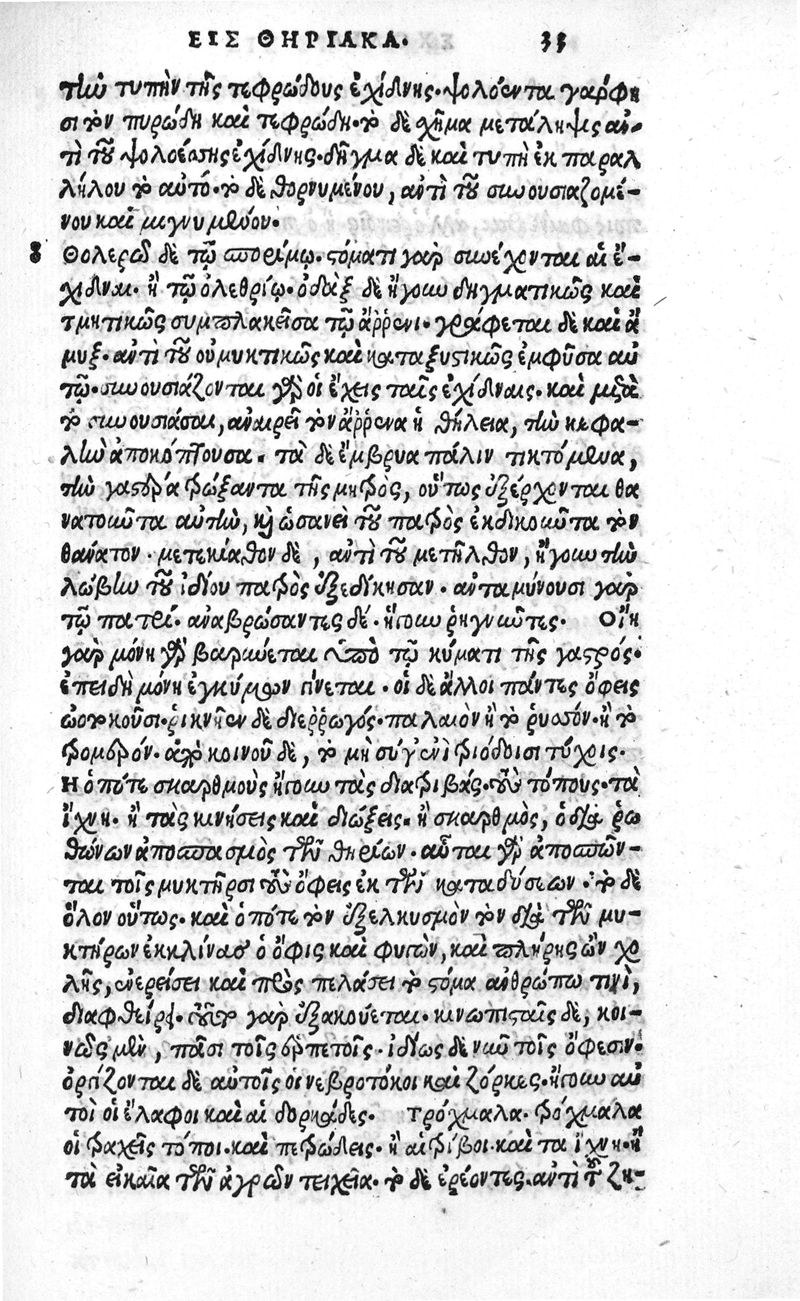 ΕΙΣ ΘΗΡΙΑΚΑ. 35
τὴν τυπὴν τῆς τεφρώδους ἐχίδνης. ψολόεντα γάρ φη
σι τὸν πυρώδη καὶ τεφρώδη. τὸ δὲ χῆμα μετάληψις ἀν-
τὶ τοῦ ψολοέσσης ἐχίδνης. δῆγμα δὲ καὶ τυπὴ ἐκ παραλ
λήλου τὸ αὐτό. τὸ δὲ θορνυμένου, ἀντὶ τοῦ συνουσιαζομέ-
νου καὶ μιγνυμένου.
Θολερῷ δὲ τῷ στομίῳ. στόματι γὰρ συνέχονται αἱ ἔ-
χιδναι. ἢ τῷ ὀλεθρίῳ. ὀδὰξ δὲ ἤγουν δηγματικῶς καὶ
τμητικῶς συμπλακεῖσα τῷ ἄρρενι. γράφεται δὲ καὶ ἀ
μυξ. ἀντὶ τοῦ ἀμυκτικῶς καὶ καταξυστικῶς ἐμφῦσα αὐ
τῷ. συνουσιάζονται γὰρ οἱ ἔχεις ταῖς ἐχίδναις. καὶ μετὰ
τὸ συνουσιάσαι, ἀναιρεῖ τὸν ἄρρενα ἡ θήλεια, τὴν κεφα-
λὴν ἀποκόπτουσα. τὰ δὲ ἔμβρυα πάλιν τικτόμενα,
τὴν γαστέρα τρώξαντα τῆς μητρὸς, οὕτως ἐξέρχονται θα
νατοῦντα αὐτὴν, καὶ ὡσανεὶ τοῦ πατρὸς ἐκδικοῦντα τὸν
θάνατον. μετεκίαθον δὲ, ἀντὶ τοῦ μετῆλθον, ἤγουν τὴν
λώβην τοῦ ἰδίου πατρὸς ἐξεδίκησαν. ἀνταμύνουσι γὰρ
τῷ πατρί. ἀναβρώσαντες δέ. ἤγουν ῥηγνῦντες. Οἴη
γὰρ μόνη γὰρ βαρύνεται ὑπὸ τῷ κύματι τῆς γαστρός.
ἐπειδὴ μόνη ἐγκύμων γίνεται. οἱ δὲ ἄλλοι πάντες ὄφεις
ὠοτοκοῦσι. ῥικνῆεν δὲ διερρωγός. παλαιὸν ἢ τὸ ῥυσόν. ἢ τὸ
τρομερόν. ἀπὸ κοινοῦ δὲ, τὸ μὴ σύγ' ἐνὶ τριόδοισι τύχοις.
Η ὁπότε σκαρθμοὺς ἤγουν τὰς διατριβάς. τοὺς τόπους. τὰ
ἴχνη. ἢ τὰς κινήσεις καὶ διώξεις. ἢ σκαρθμὸς, ὁ διὰ ῥω
θώνων ἀποσπασμὸς τῶν θηρίων. αὗται γὰρ ἀποσπῶν-
ται τοῖς μυκτῆρσι τοὺς ὄφεις ἐκ τῶν καταδύσεων. τὸ δὲ
ὅλον οὕτως. καὶ ὁπότε τὸν ἐξελκυσμὸν τὸν διὰ τῶν μυ-
κτήρων ἐκκλίνας ὁ ὄφις καὶ φυγὼν, καὶ πλήρης ὢν χο
λῆς, ἐνερείσει καὶ πρὸς πελάσει τὸ στόμα ἀνθρώπῳ τινὶ,
διαφθείρει. τοῦτο γὰρ ἐξακούεται. κινωπησταῖς δὲ, κοι-
νῶς μὲν, πᾶσι τοῖς ἑρπετοῖς. ἰδίως δὲ νῦν τοῖς ὄφεσιν.
ὀργίζονται δὲ αὐτοῖς οἱ νεβροτόκοι καὶ ζόρκες. ἤγουν αὐ
τοὶ οἱ ἔλαφοι καὶ αἱ δορκάδες. Τρόχμαλα. τρόχμαλα
οἱ τραχεῖς τόποι. καὶ πετρώδεις. ἢ αἱ τρίβοι. καὶ τα ἴχνη. ἢ
τὰ εἰκαῖα τῶν ἀγρῶν τειχεῖα. τὸ δὲ ἐρέοντες. ἀντὶ τοῦ ζη-